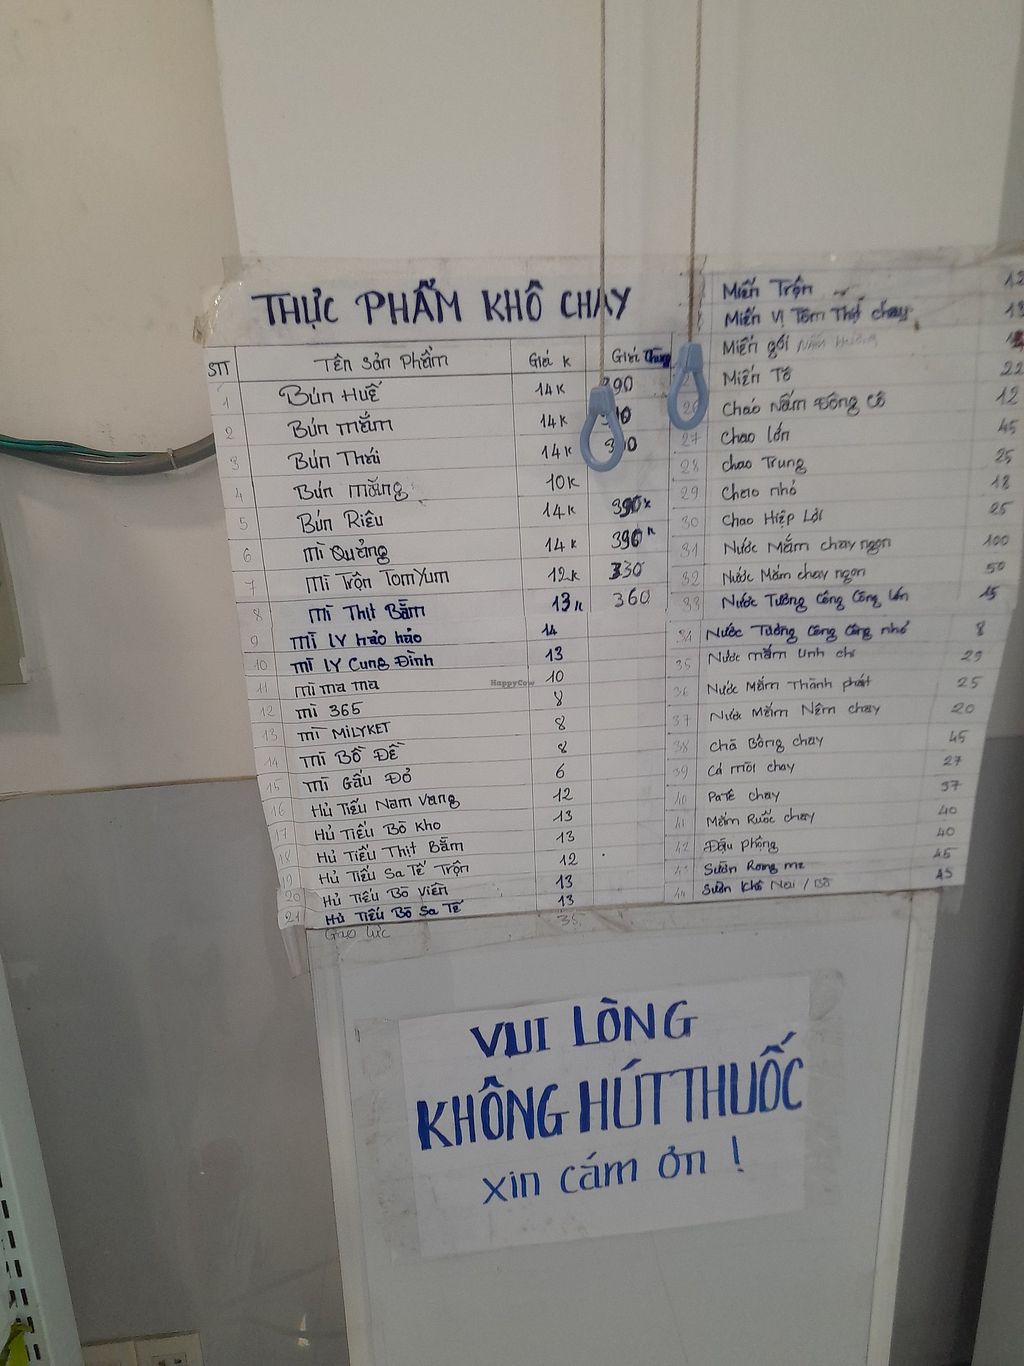 THỰC PHẨM KHÔ CHAY
STT Tên Sản Phẩm Giá K Giá Thùng
1 Bún Huế 14K 390
2 Bún mắm 14K
3 Bún Thái 14K
4 Bún Măng 10K
5 Bún Riêu 14K 390K
6 Mì Quảng 14K 390K
7 Mì Trộn TomYum 12K 330
8 Mì Thịt Bằm 13K 360
9 Mì LY hảo hảo 14
10 Mì LY Cung Đình 13
11 mì ma ma 10
12 Mì 365 8
13 Mì MiLYKET 8
14 Mì Bồ Đề 8
15 Mì Gấu Đỏ 6
16 Hủ Tiếu Nam Vang 12
17 Hủ Tiếu Bò Kho 13
18 Hủ Tiếu Thịt Bằm 13
19 Hủ Tiếu Sa Tế Trộn 12
20 Hủ Tiếu Bò Viên 13
21 Hủ Tiếu Bò Sa Tế 13
Gạo lức 35
Miến Trộn 12
Miến Vị Tôm Thịt chay
Miến gói
Miến Tô 22
26 Cháo Nấm Đông Cô 12
27 Chao lớn 45
28 chao Trung 25
29 Chao nhỏ 18
30 Chao Hiệp Lợi 25
31 Nước Mắm chay ngon 100
32 Nước Mắm chay ngon 50
33 Nước Tương Công Công lớn 15
34 Nước Tương Công Công nhỏ 8
35 Nước mắm Linh chi 29
36 Nước Mắm Thành phát 25
37 Nước Mắm Nêm chay 20
38 Chà Bông chay 45
39 Cá mòi chay 27
40 PaTê chay 37
41 Mắm Ruốc chay 40
42 Đậu phộng 40
43 Sườn Rong 45
44 Sườn Khô Nai / Bò 45
HappyCow
VUI LÒNG
KHÔNG HÚT THUỐC
xin cám ơn !